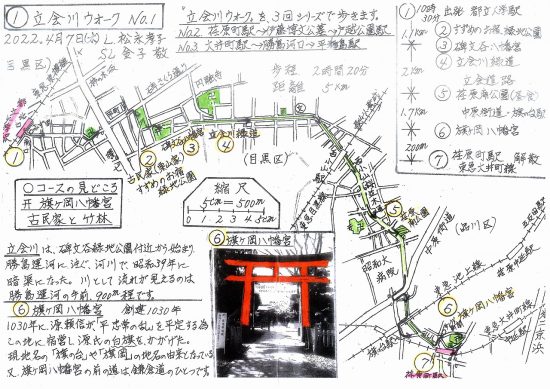 ① 立会川ウォーク No.1
2022.4月7日(木) L 松永孝子
SL 金子 敬
目黒区)
立会川ウォーク、を3回シリーズで歩きます。
No.2 荏原町駅→伊藤博文公墓→戸越公園駅
No.3 大井町駅→勝島河口→平和島駅
歩程 2時間20分
距離 5Km
① 10時30分 出発 都立大学駅
1.7Km
② すずめのお宿緑地公園
③ 碑文谷八幡宮
④ 立会川緑道
立会道路
1.7Km
⑤ 荏原南公園(昼食)
中原街道→旗の台駅
⑥ 旗ヶ岡八幡宮
200m
⑦ 荏原町駅 解散
東急大井町線
①
②
③
④
円融寺
碑文谷八幡宮
立会川緑道
(目黒区)
古民家
すずめのお宿
緑地公園
〇コースの見どころ
旗ヶ岡八幡宮
古民家と竹林
縮尺
5cm=500m
0 1 2 3 4 5cm
⑤
中原街道
(品川区)
昭和大病院
東急池上線
⑥
旗ヶ岡八幡宮
旗の台駅
東急大井町線
⑦
荏原町駅
至京浜
⑥ 旗ヶ岡八幡宮
立会川は、碑文谷緑地公園付近から始まり
勝島運河に注ぐ、河川で、昭和39年に
暗渠になった。川として流れが見えるのは
勝島運河の手前、900m程です。
⑥ 旗ヶ岡八幡宮 創建1030年
1030年に源頼信が「平忠常の乱」を平定する為
この地に宿営し源氏の白旗をかかげた。
現地名の「旗の台」や「旗岡」の地名の由来となっている
又、旗ヶ岡八幡宮の前の道は鎌倉道のひとつです。